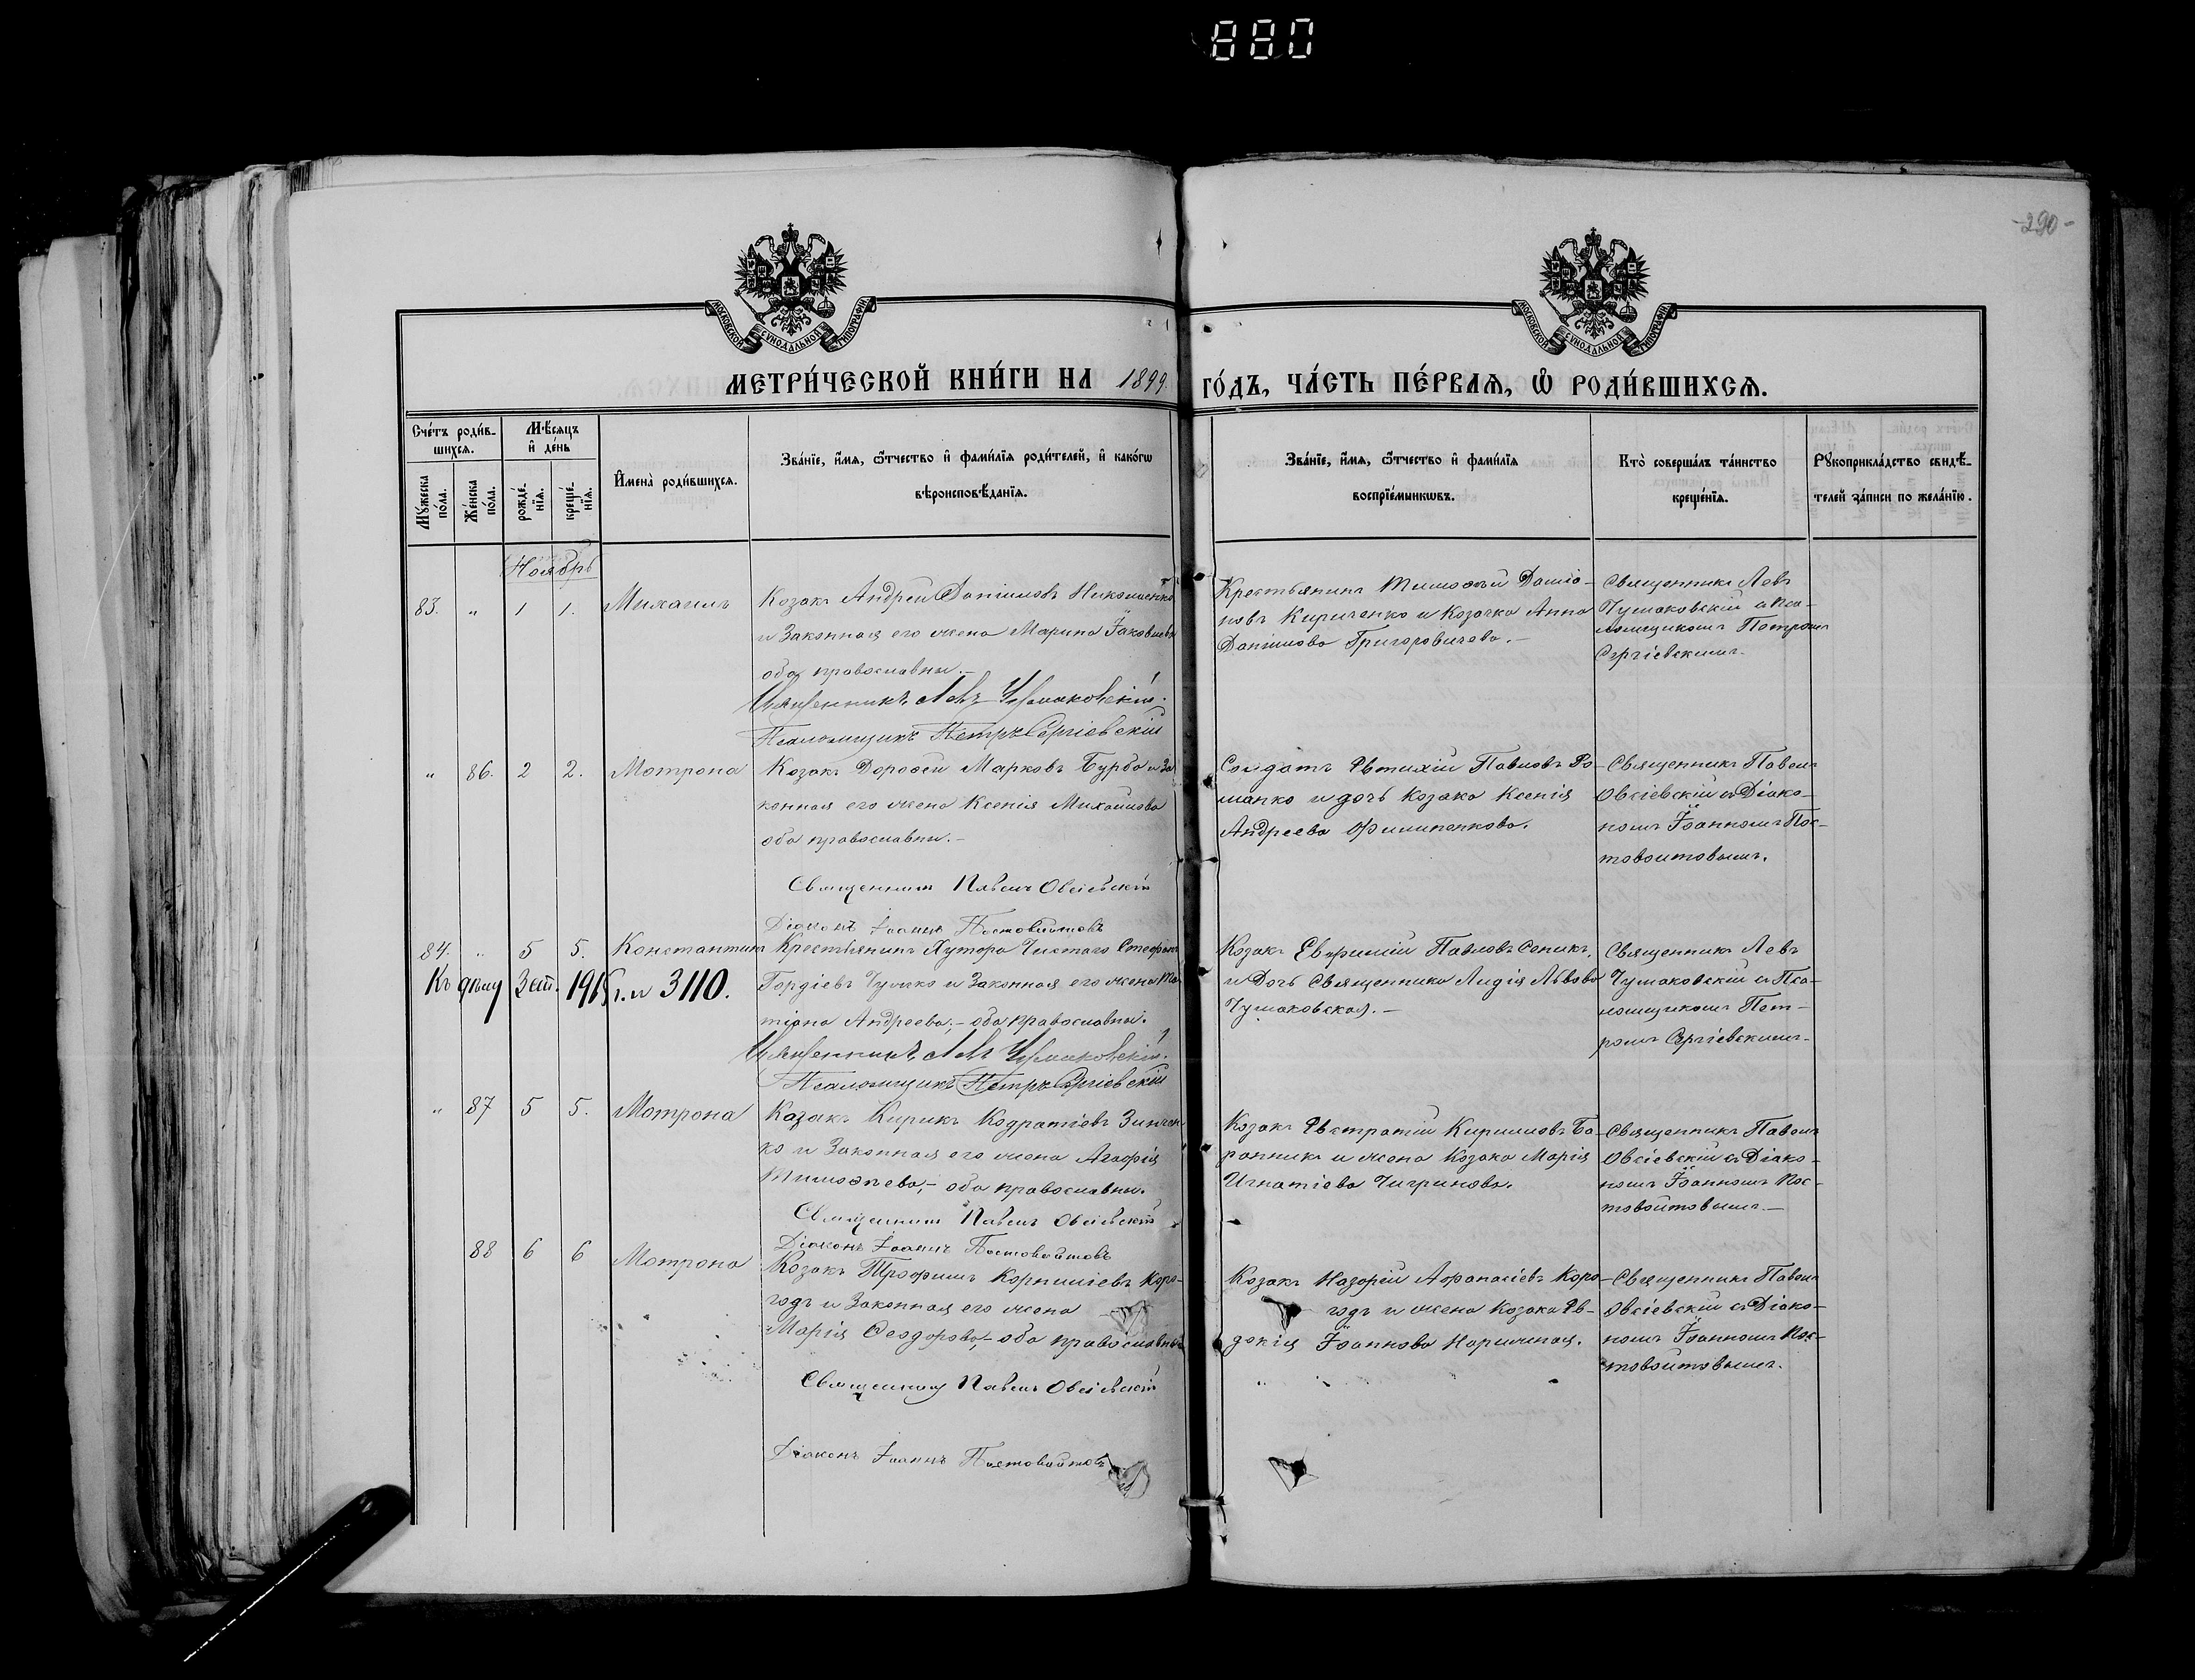 880
-290-
МОСКОВСКОЙ СѴНОДАЛЬНОЙ ТИПОГРАФІИ
МОСКОВСКОЙ СѴНОДАЛЬНОЙ ТИПОГРАФІИ
МЕТРИ́ЧЕСКОЙ КНИ́ГИ НА 1899 ГО́ДЪ, ЧА́СТЬ ПЕ́РВАѦ, Ѡ҆ РОДИ́ВШИХСѦ.
Сче́тъ роди́в-
шихсѧ.
Мꙋ́жеска по́ла.
Же́нска по́ла.
Мѣ́сѧцъ
и҆ де́нь
рожде́-
нїѧ.
креще́-
нїѧ.
И҆мена̀ роди́вшихсѧ.
Зва́нїе, и҆́мѧ, ѻ҆́тчество и҆ фами́лїѧ роди́телей, и҆ како́гѡ
вѣроисповѣ́данїѧ.
Зва́нїе, и҆́мѧ, ѻ҆́тчество и҆ фами́лїѧ
воспрїе́мникѡвъ.
Кто̀ соверша́лъ та́инство
креще́нїѧ.
Рꙋкоприкла́дство свидѣ́-
телей за́писи по жела́нїю.
Ноябрь
83. „ 1 1. Михаилъ
Козакъ Андрей Даніиловъ Николаенко
и Законная его жена Марина Іаковлева
оба православны.—
Священникъ Левъ Чумаковскій.
Псаломщикъ Петръ Сергіевскій
Крестьянинъ Тимоѳей Даміа-
новъ Кириченко и Козачка Анна
Даніилова Григоровичева.—
Священникъ Левъ
Чумаковскій съ Пса-
ломщикомъ Петромъ
Сергіевскимъ.
„ 86. 2 2. Мотрона
Козакъ Дороѳей Марковъ Бурба и За
конная его жена Ксенія Михайлова
оба православны.—
Священникъ Павелъ Овсіевскій
Діаконъ Іоаннъ Постовойтовъ
Солдатъ Евтихій Павловъ Ро-
манко и дочь Козака Ксенія
Андреева Филипенкова.
Священникъ Павелъ
Овсіевскій съ Діако-
номъ Іоанномъ Пос-
товойтовымъ.
84. „ 5 5. Константинъ
Къ дѣлу 3 ст. 1915 г. № 3110.
Крестьянинъ Хутора Чистаго Стефанъ
Гордіевъ Чумако и Законная его жена Та
тіана Андреева,— оба православны.
Священникъ Левъ Чумаковскій.
Псаломщикъ Петръ Сергіевскій
Козакъ Евфимій Павловъ Сеникъ,
и Дочь Священника Лидія Львова
Чумаковская.—
Священникъ Левъ
Чумаковскій съ Пса-
ломщикомъ Пет-
ромъ Сергіевскимъ.
„ 87 5 5. Мотрона
Козакъ Кирикъ Кодратіевъ Зинчен
ко и Законная его жена Агафія
Тимоѳеева,— оба православны.
Священникъ Павелъ Овсіевскій
Діаконъ Іоаннъ Постовойтовъ
Козакъ Евстратій Кирилловъ Ба-
ранникъ и жена Козака Марія
Игнатіева Чигринова.
Священникъ Павелъ
Овсіевскій съ Діако-
номъ Іоанномъ Пос-
товойтовымъ.—
88 6 6 Мотрона
Козакъ Трофимъ Корниліевъ Коро-
годъ и Законная его жена
Марія Ѳеодорова,— оба православны
Священникъ Павелъ Овсіевскій
Діаконъ Іоаннъ Постовойтовъ
Козакъ Назарій Афанасіевъ Коро-
годъ и жена Козака Ев-
докія Іоаннова Нарижная.
Священникъ Павелъ
Овсіевскій съ Діако-
номъ Іоанномъ Пос-
товойтовымъ.